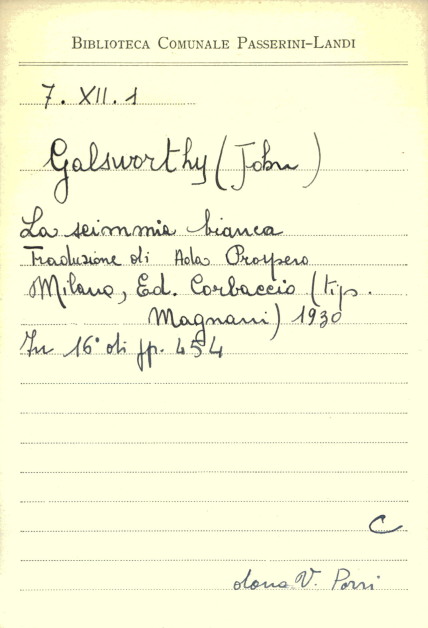 BIBLIOTECA COMUNALE PASSERINI-LANDI
7. XII. 1
Galsworthy (John)
La scimmia bianca
Traduzione di Ada Prospero
Milano, Ed. Corbaccio (tip.
Magnani) 1930
In 16° di pp. 454
C
dono V. Porri